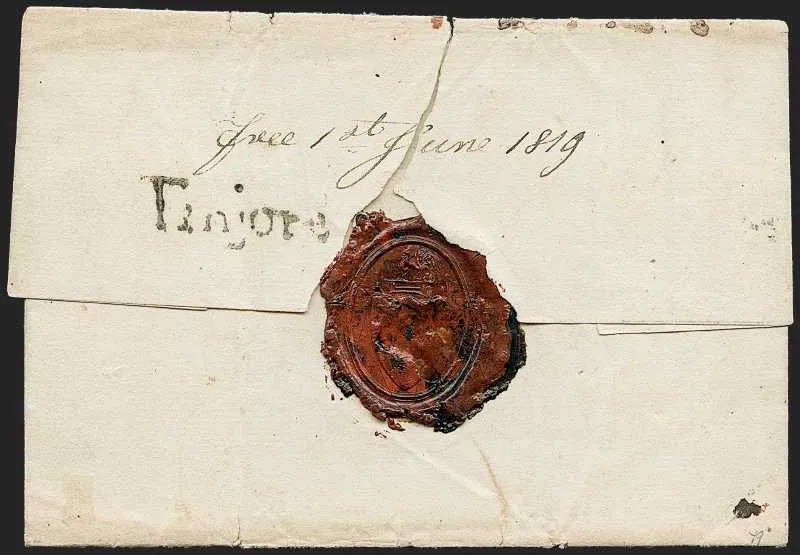 free 1st June 1819
Tanjore